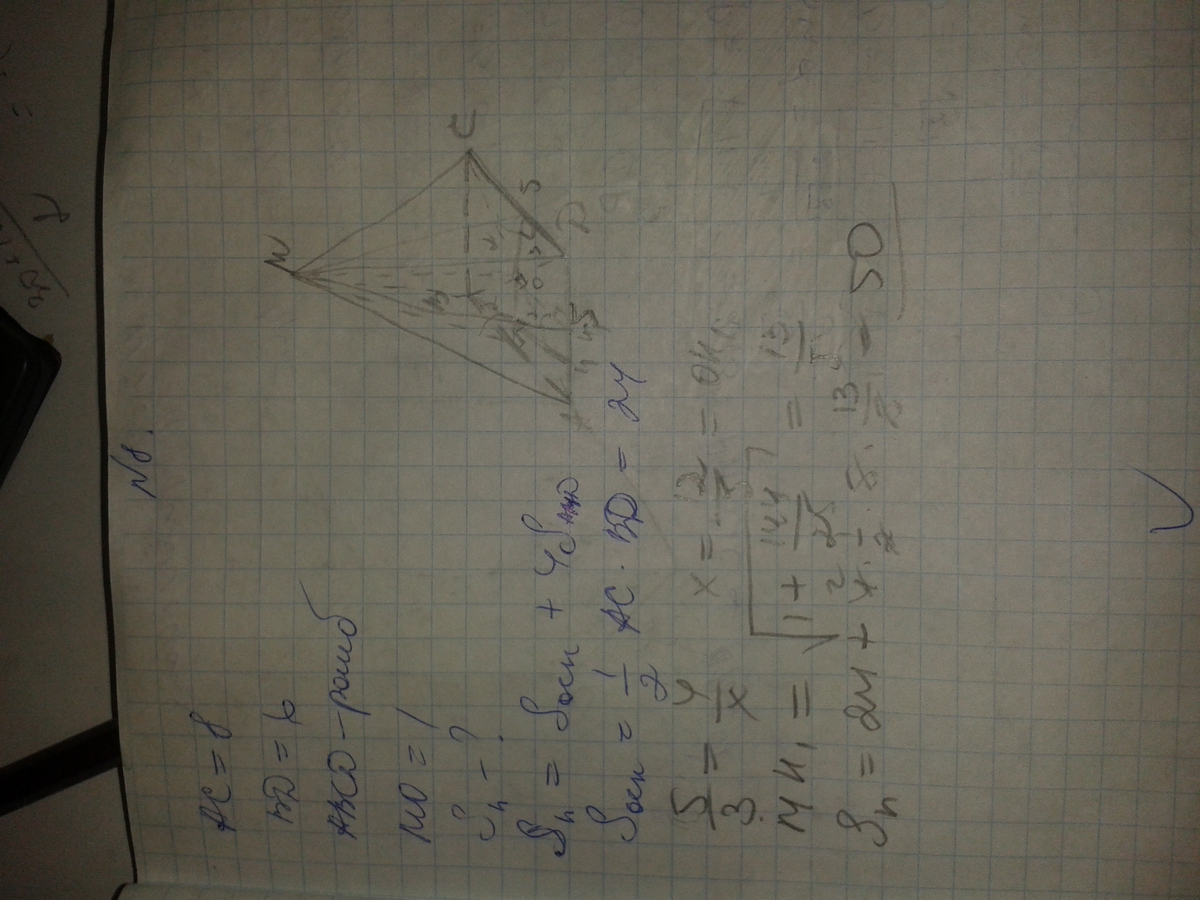 №8.
AC = 8
BD = 6
ABCD – ромб
MO = 1
Sп – ?
Sп = Sосн + 4S
Sосн = 1/2 AC · BD = 24
5/3 = 4/x x = 12/5 = OK₁
MK₁ = √(1 + 144/25) = 13/5
Sп = 24 + 4 · 1/2 · 5 · 13/5 = 50
M
C
5
D
4